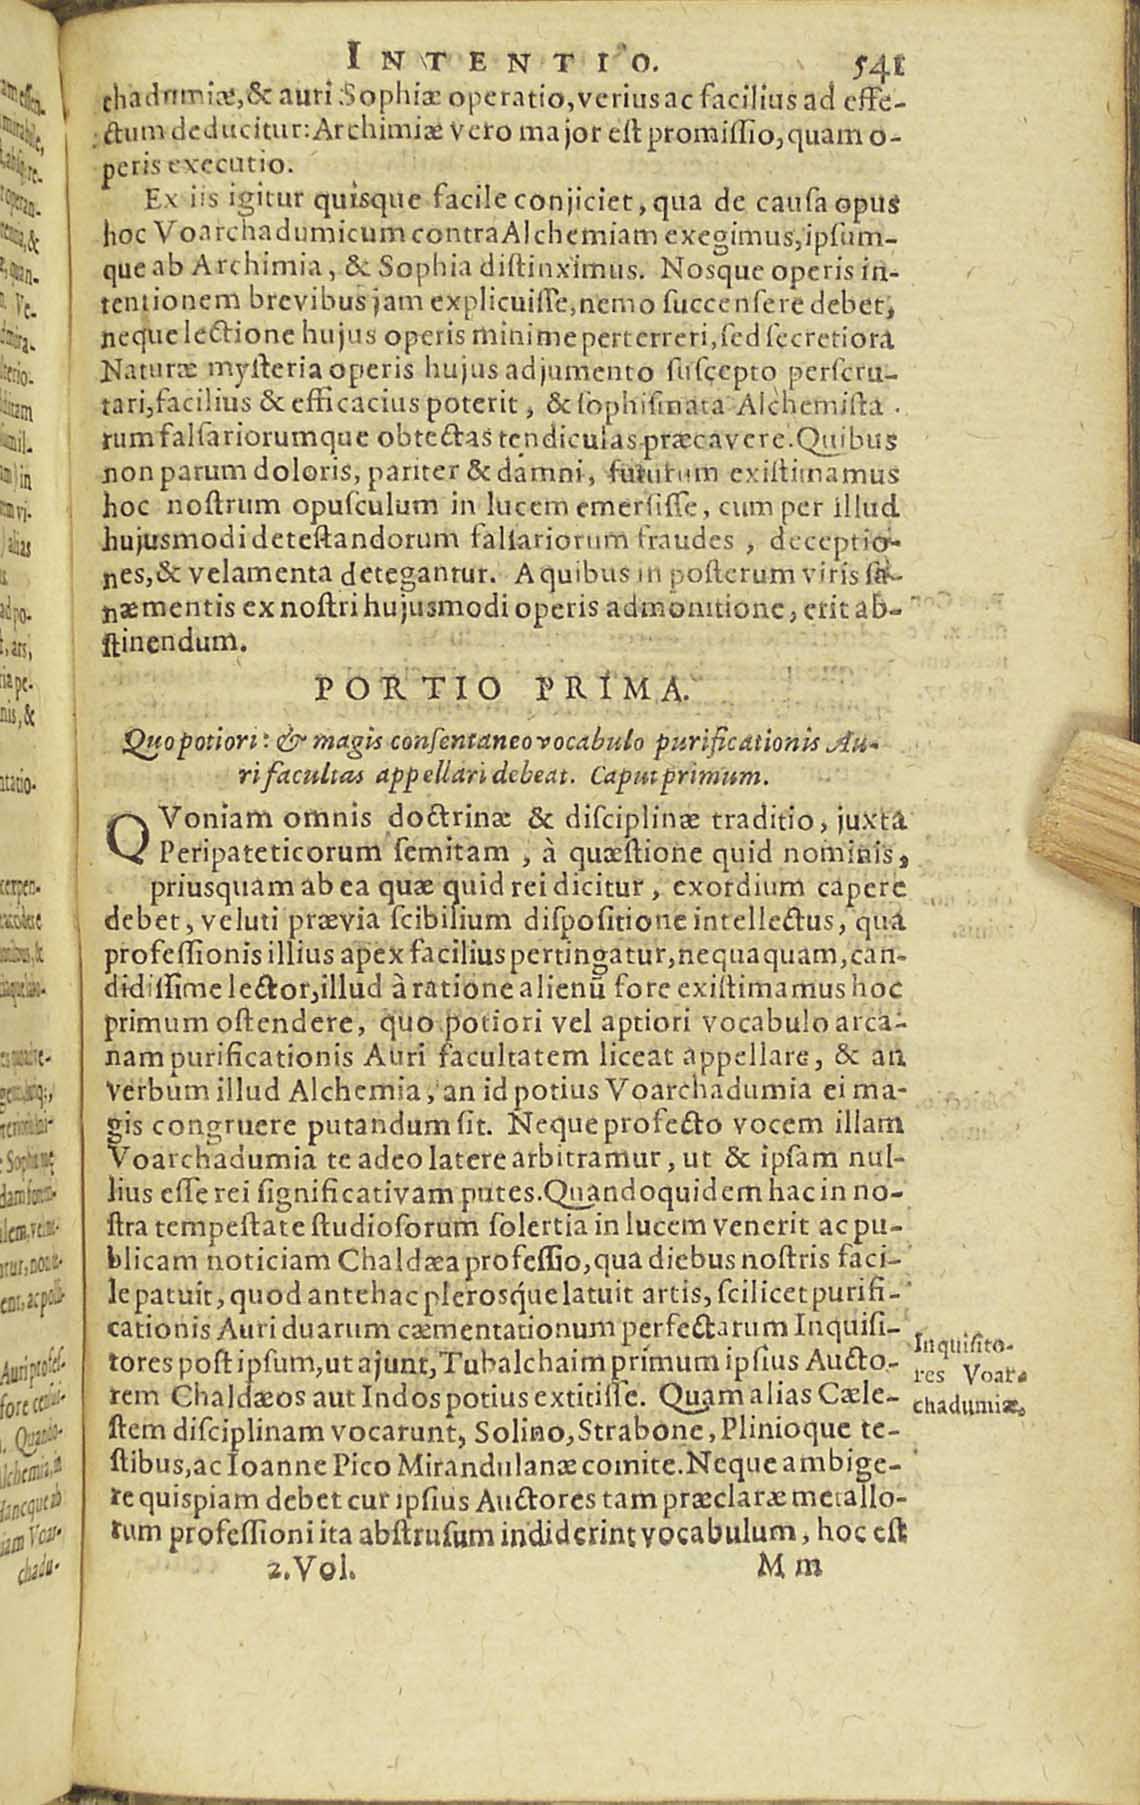 INTENTIO. 541
chadumiæ, & auri Sophiæ operatio, verius ac facilius ad effe-
ctum deducitur: Archimiæ vero major est promissio, quam o-
peris executio.
Ex iis igitur quisque facile conjiciet, qua de causa opus
hoc Voarchadumicum contra Alchemiam exegimus, ipsum-
que ab Archimia, & Sophia distinximus. Nosque operis in-
tentionem brevibus jam explicuisse, nemo succensere debet,
neque lectione hujus operis minime perterreri, sed secretiora
Naturæ mysteria operis hujus adjumento suscepto perscru-
tari, facilius & efficacius poterit, & sophismata Alchemista-
rum falsariorumque obtectas tendiculas præcavere. Quibus
non parum doloris, pariter & damni, futurum existimamus
hoc nostrum opusculum in lucem emersisse, cum per illud
hujusmodi detestandorum falsariorum fraudes, deceptio-
nes, & velamenta detegantur. A quibus in posterum viris sa-
næ mentis ex nostri hujusmodi operis admonitione, erit ab-
stinendum.
PORTIO PRIMA.
Quo potiori: & magis consentaneo vocabulo purificationis Au-
ri facultas appellari debeat. Caput primum.
QVoniam omnis doctrinæ & disciplinæ traditio, juxta
Peripateticorum semitam, à quæstione quid nominis,
priusquam ab ea quæ quid rei dicitur, exordium capere
debet, veluti prævia scibilium dispositione intellectus, qua
professionis illius apex facilius pertingatur, nequaquam, can-
didissime lector, illud à ratione alienū fore existimamus hoc
primum ostendere, quo potiori vel aptiori vocabulo arca-
nam purificationis Auri facultatem liceat appellare, & an
verbum illud Alchemia, an id potius Voarchadumia ei ma-
gis congruere putandum sit. Neque profecto vocem illam
Voarchadumia te adeo latere arbitramur, ut & ipsam nul-
lius esse rei significativam putes. Quandoquidem hac in no-
stra tempestate studiosorum solertia in lucem venerit ac pu-
blicam noticiam Chaldæa professio, qua diebus nostris faci-
le patuit, quod antehac plerosque latuit artis, scilicet purifi-
cationis Auri duarum cæmentationum perfectarum Inquisi-
tores post ipsum, ut ajunt, Tubalchaim primum ipsius Aucto-
rem Chaldæos aut Indos potius extitisse. Quam alias Cæle-
stem disciplinam vocarunt, Solino, Strabone, Plinioque te-
stibus, ac Ioanne Pico Mirandulanæ comite. Neque ambige-
re quispiam debet cur ipsius Auctores tam præclaræ metallo-
rum professioni ita abstrusum indiderint vocabulum, hoc est
Inquisito-
res Voar-
chadumiæ.
2. Vol. Mm